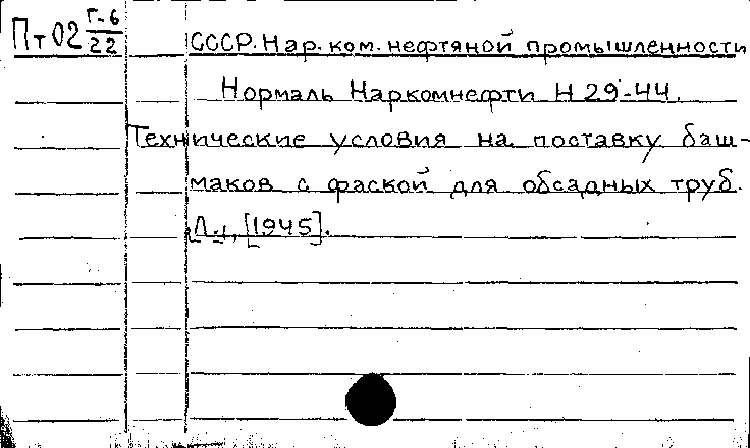 Пт02 Г-6/22
СССР. Нар. ком. нефтяной промышленности
Нормаль Наркомнефти Н 29-44.
Технические условия на поставку баш-
маков с фаской для обсадных труб.
[Л.], [1945].